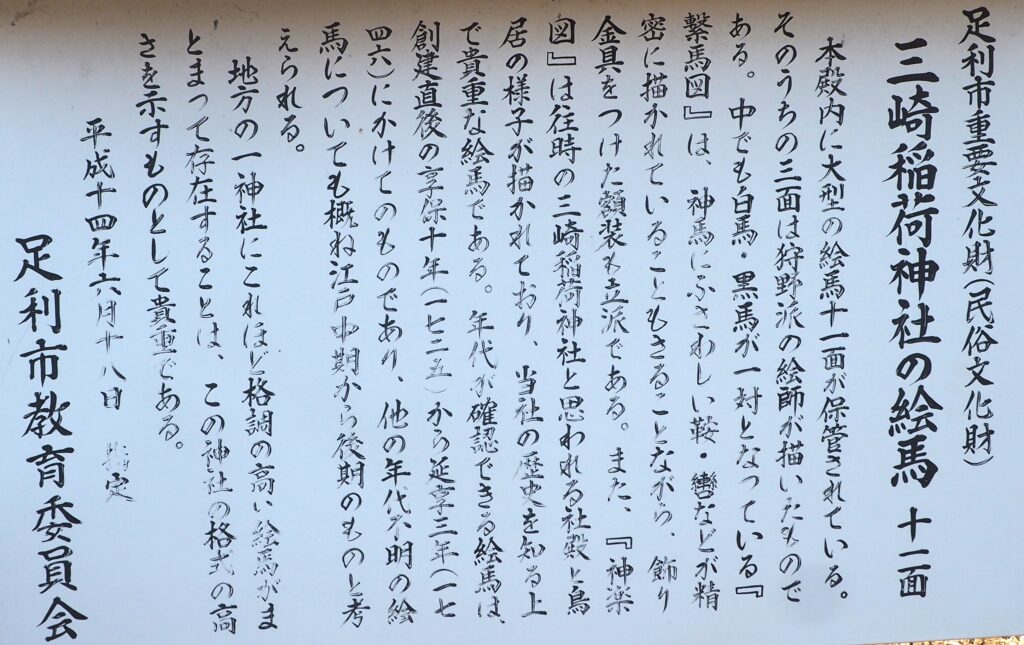 足利市重要文化財(民俗文化財)
三崎稲荷神社の絵馬 十一面
本殿内に大型の絵馬十一面が保管されている。
そのうちの三面は狩野派の絵師が描いたもので
ある。中でも白馬・黒馬が一対となっている『
繋馬図』は、神馬にふさわしい鞍・轡などが精
密に描かれていることもさることながら、飾り
金具をつけた額装も立派である。また、『神楽
図』は往時の三崎稲荷神社と思われる社殿と鳥
居の様子が描かれており、当社の歴史を知る上
で貴重な絵馬である。年代が確認できる絵馬は、
創建直後の享保十年(一七二五)から延享三年(一七
四六)にかけてのものであり、他の年代不明の絵
馬についても概ね江戸中期から後期のものと考
えられる。
地方の一神社にこれほど格調の高い絵馬がま
とまって存在することは、この神社の格式の高
さを示すものとして貴重である。
平成十四年六月十八日 指定
足利市教育委員会